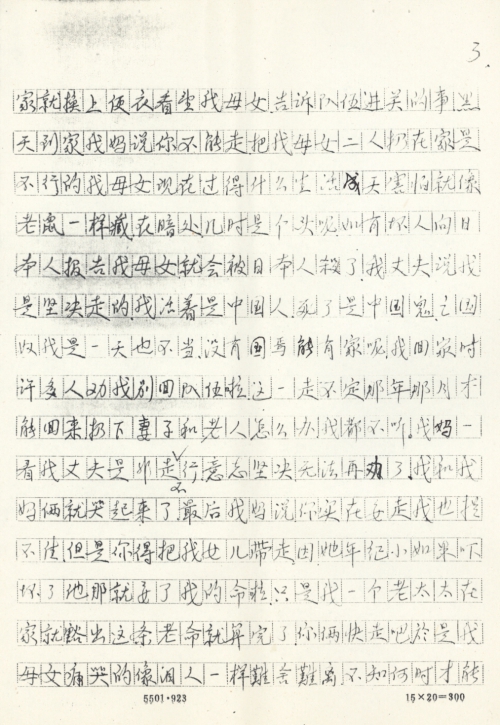 3.
家就换上便衣看望我母女告诉队伍进关的事黑
天到家我妈说你不能走把我母女二人扔在家是
不行的我母女现在过得什么生活成天害怕就像
老鼠一样藏在暗处几时是个头呢如有坏人向日
本人报告我母女就会被日本人殺了我丈夫说我
是坚决走的我活着是中国人死了是中国鬼亡国
奴我是一天也不当没有国焉能有家呢我回家时
许多人劝我别回队伍啦这一走不定那年那月才
能回来扔下妻子和老人怎么办我都不听我妈一
看我丈夫是非走不行意志坚决无法再劝了我和我
妈俩就哭起来了最后我妈说你实在要走我也拦
不住但是你得把我女儿带走因她年纪小如果吓
坏了她那就要了我的命啦只是我一个老太太在
家就豁出这条老命就算完了你俩快走吧於是我
母女痛哭的像泪人一样難舍難离不知何时才能
5501·923
15×20=300